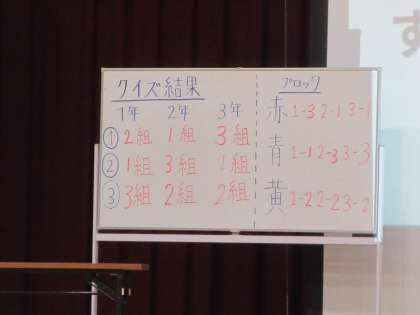 す
クイズ結果
1年 2年 3年
① 2組 1組 3組
② 1組 3組 1組
③ 3組 2組 2組
ブロック
赤 1-3 2-1 3-1
青 1-1 2-3 3-3
黄 1-2 2-2 3-2